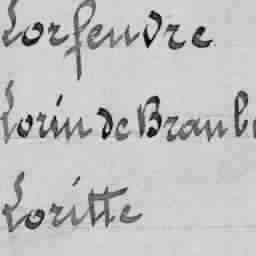 Lorfeuvre
Lorin de Braub
Loritte